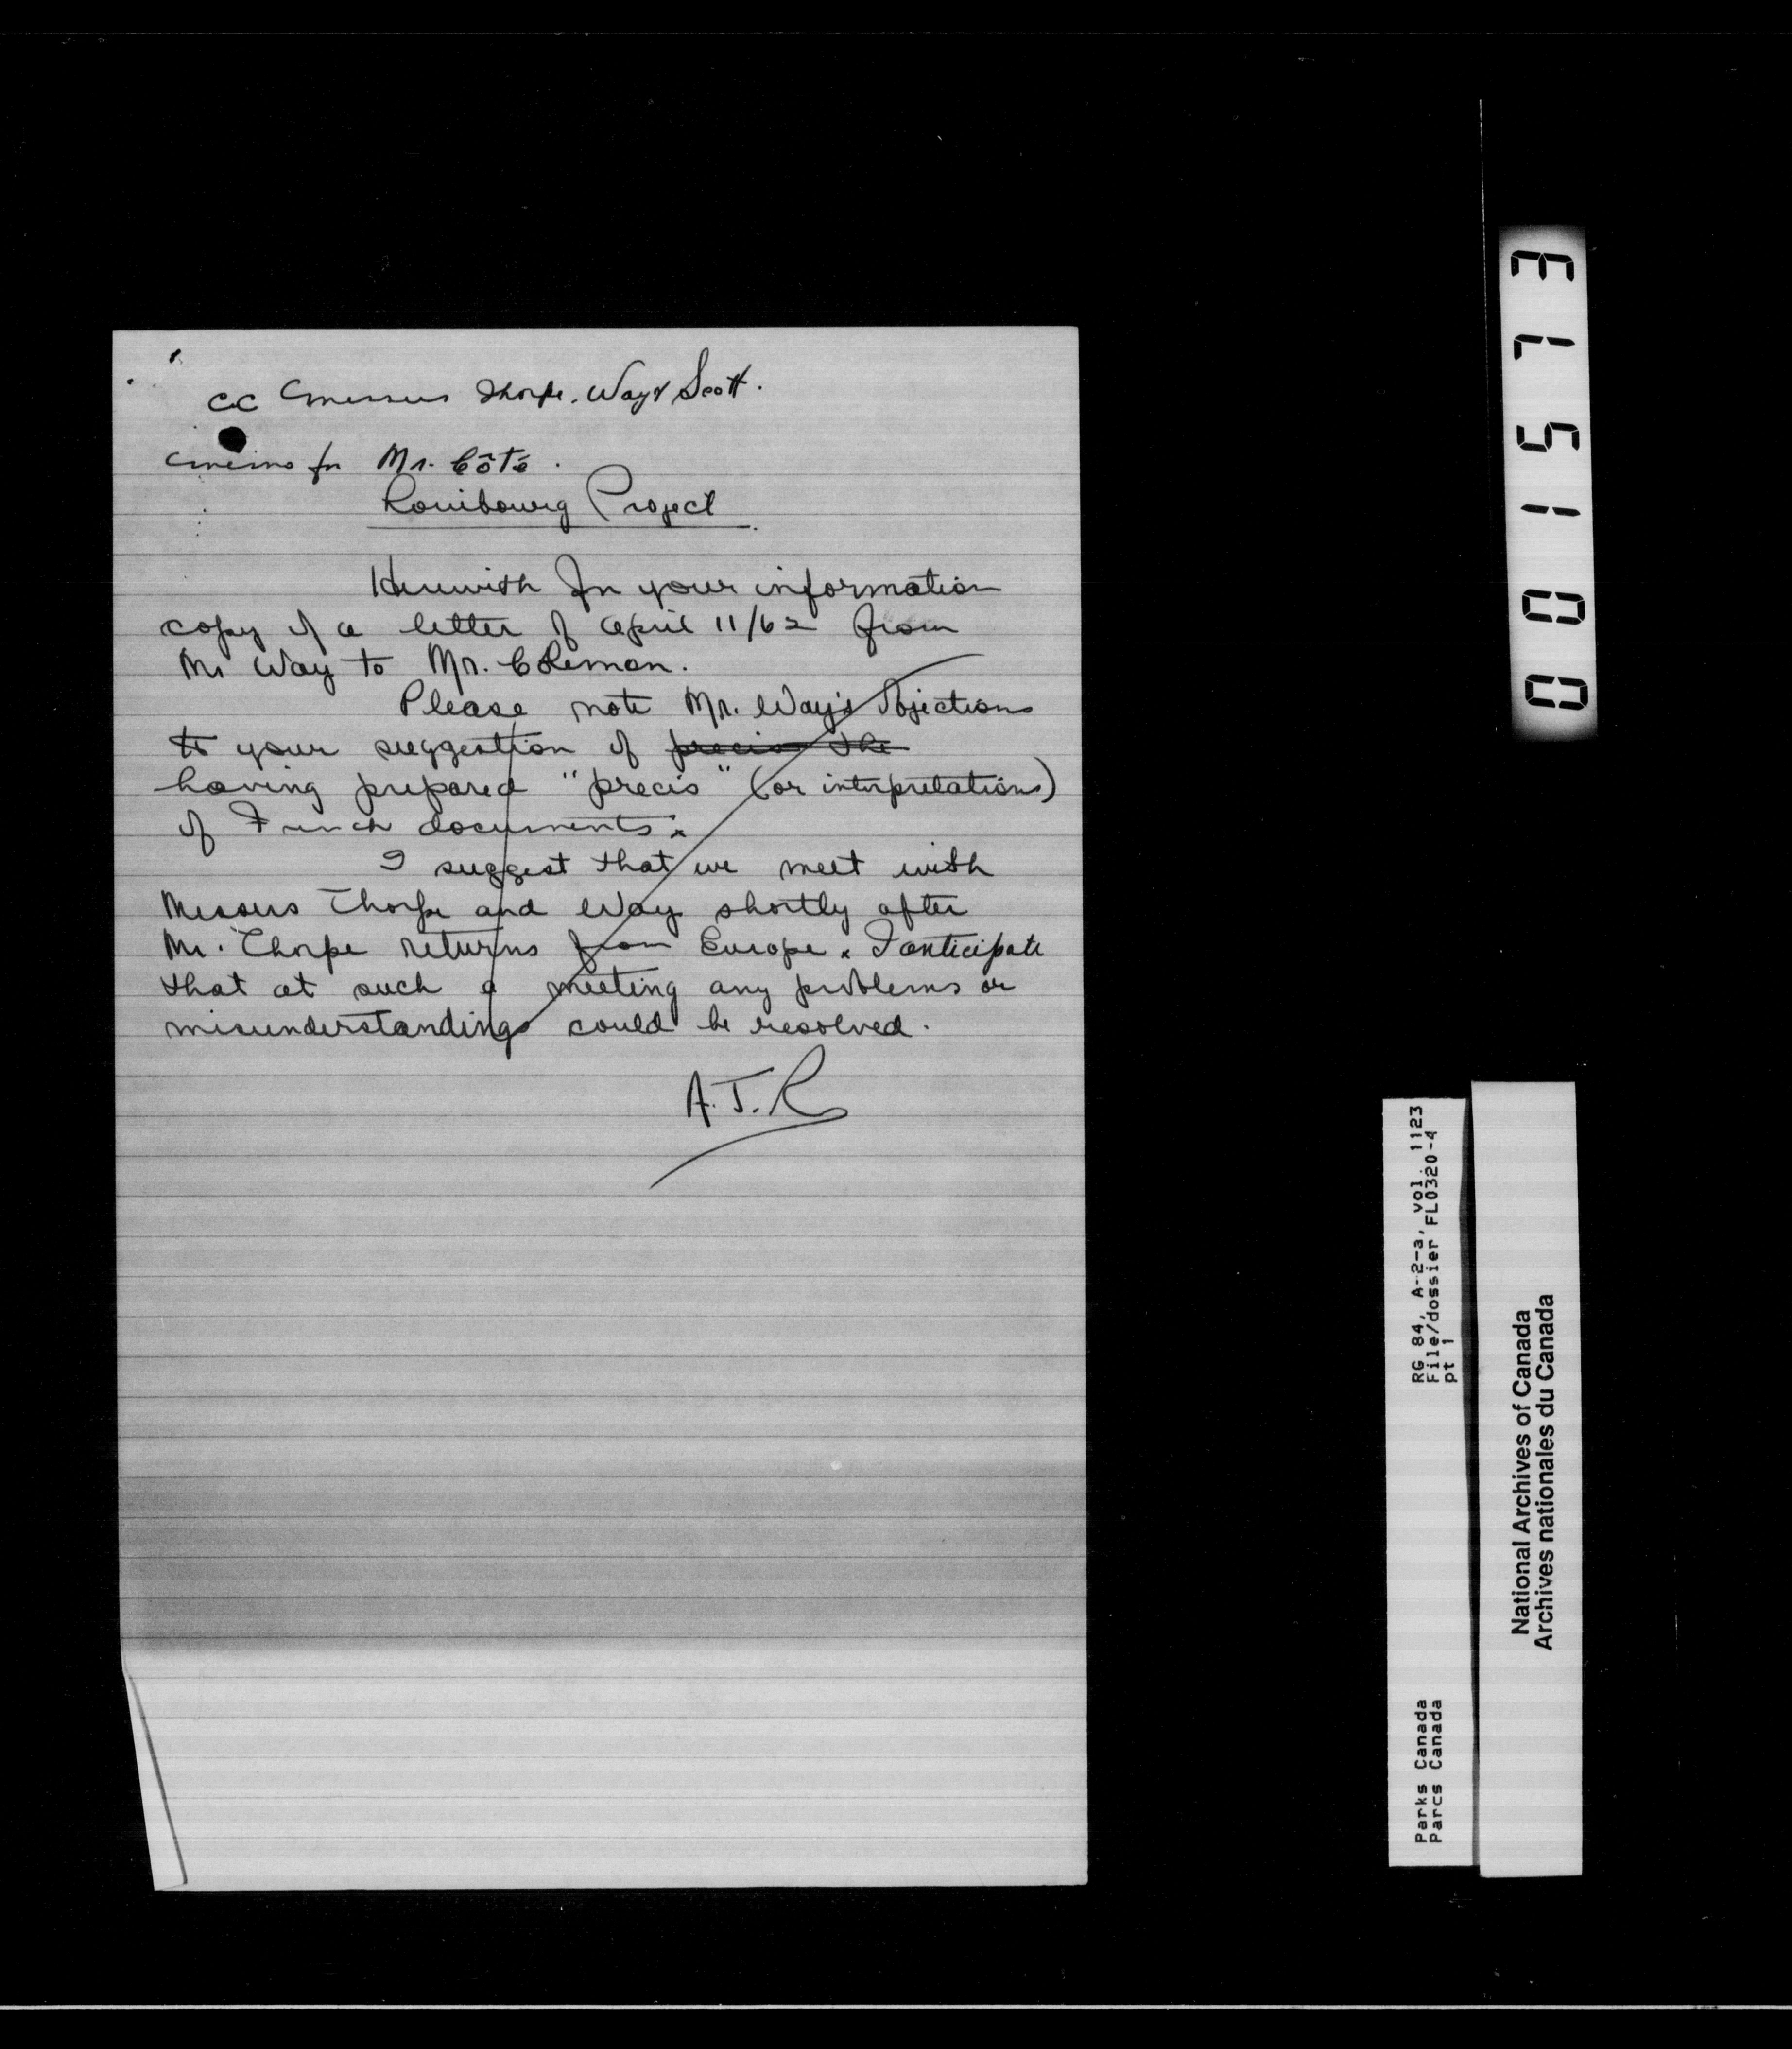 cc Messrs Thorpe, Way & Scott.
Memo for Mr. Côté.
Louisbourg Project
Herewith for your information
copy of a letter of April 11/62 from
Mr Way to Mr. Coleman.
Please note Mr. Way's objections
to your suggestion of precis the
having prepared "precis" (or interpretations)
of French documents.
I suggest that we meet with
Messrs Thorpe and Way shortly after
Mr. Thorpe returns from Europe. I anticipate
that at such a meeting any problems or
misunderstandings could be resolved.
A.J.R
0015173
RG 84, A-2-a, vol. 1123
File/dossier FLO320-4
pt 1
Parks Canada
Parcs Canada
National Archives of Canada
Archives nationales du Canada